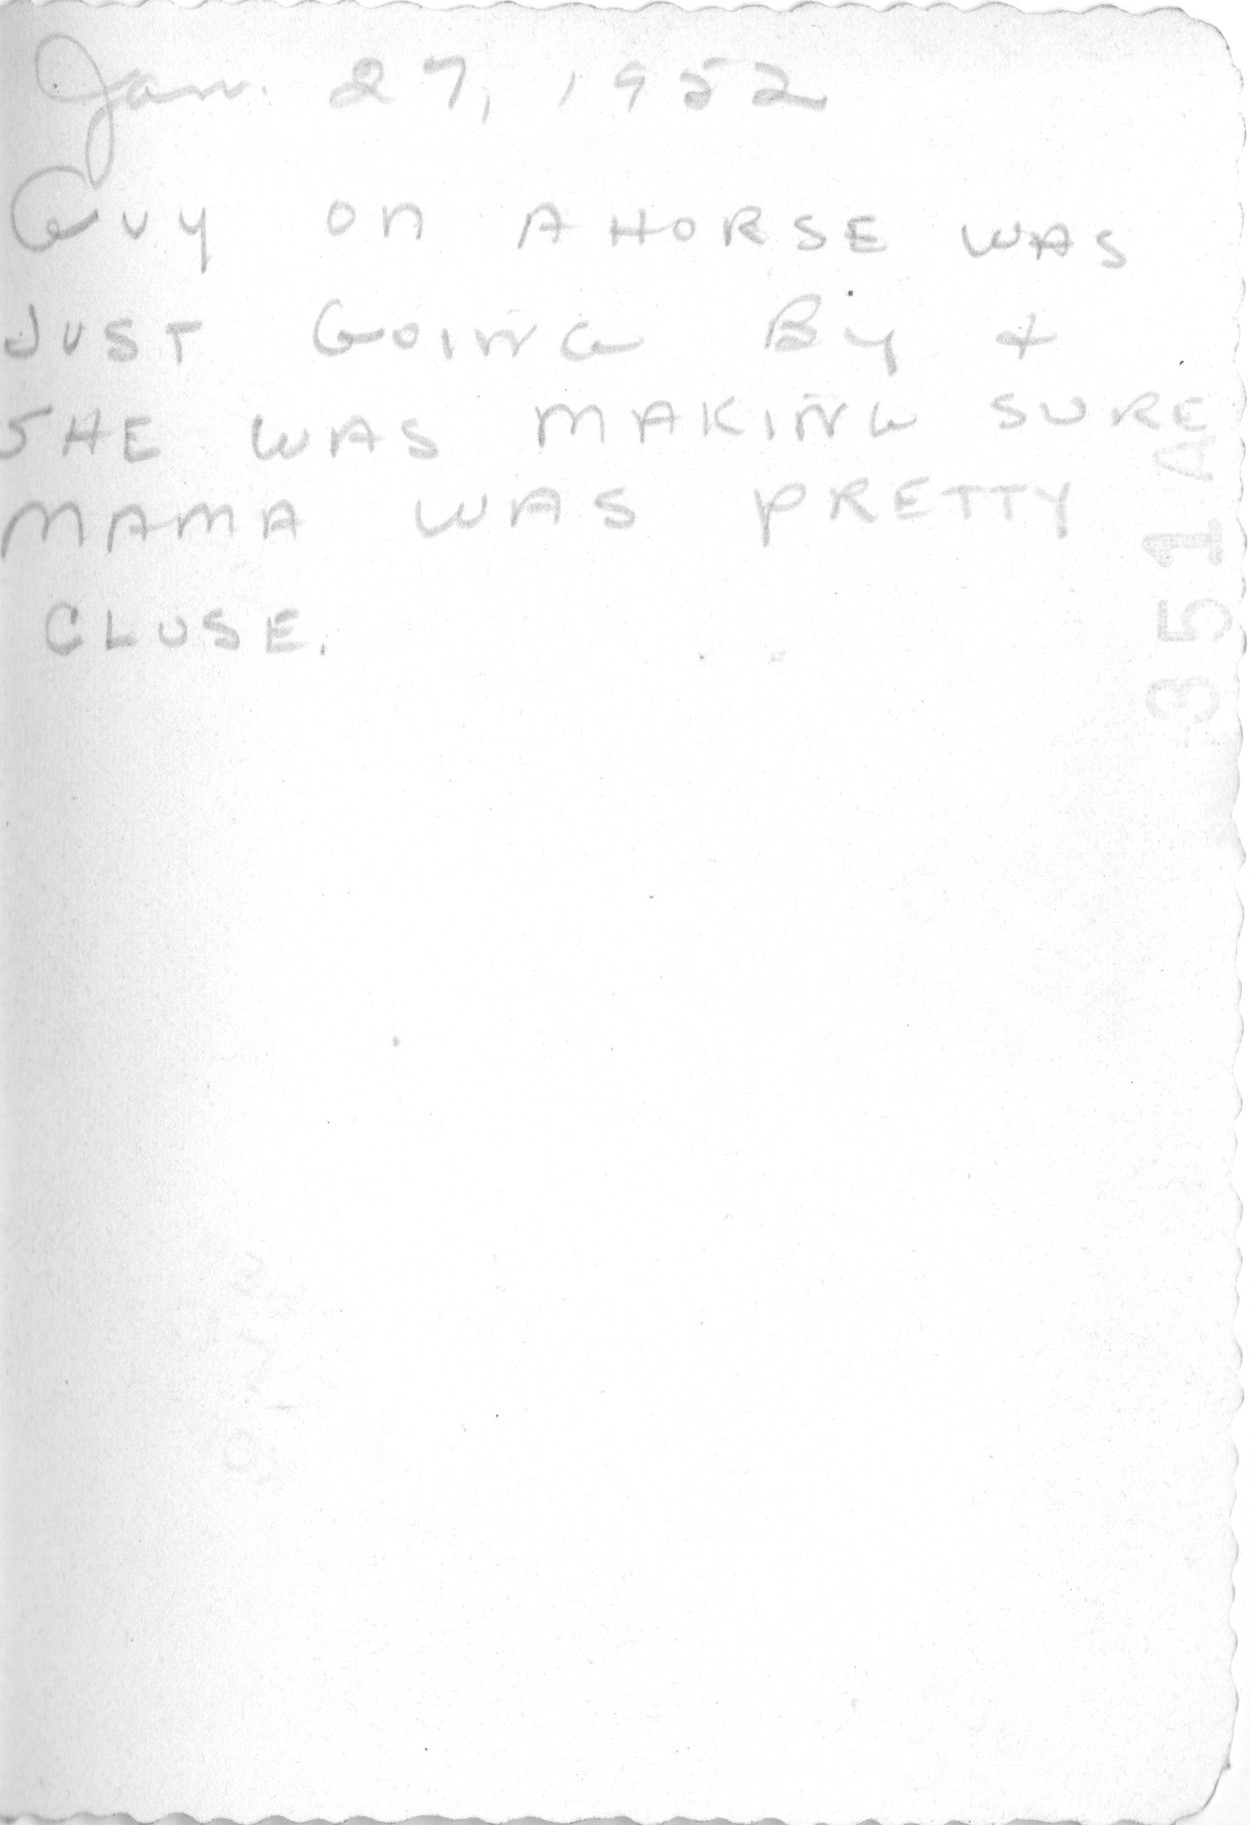 Jan. 27, 1952
GUY ON A HORSE WAS
JUST GOING BY +
SHE WAS MAKING SURE
MAMA WAS PRETTY
CLOSE.
351 A